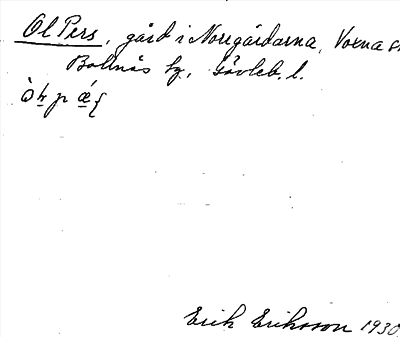 Ol Pers, gård i Norrgårdarna, Voxna
Bollnäs tg, Gävleb. l.
Erik Eriksson 1930.